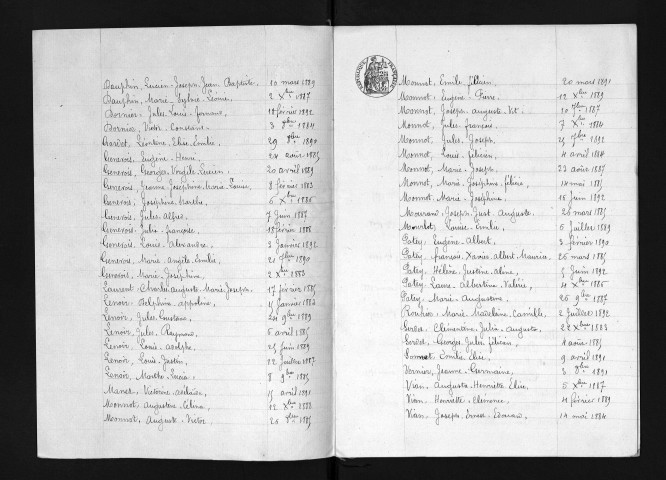 Dauphin, Lucien Joseph Jean Baptiste. 10 mars 1889
Dauphin, Marie Sylvie Léonie. 2 Xbre 1887
Dornier, Jules Louis 18 février 1892
Dornier, Victor Constant. 3 1884
Elise Emilie. 29 1890
Genevois, Eugène Henri. 24 août 1885
Genevois, Georges Virgile Lucien. 20 avril 1889
Genevois, Jeanne Joséphine Marie Louise 8 février 1883
Genevois, Joséphine Marthe. 6 Xbre 1886
Genevois, Jules Alfred. 7 Juin 1887
Genevois, Julie françoise. 15 février 1888
Genevois, Louis Alexandre. 3 Janvier 1892
Genevois, Marie Angèle Emilie. 21 1890
Genevois, Marie Joséphine. 2 Xbre 1886
Laurent Charles Auguste Marie Joseph. 17 février 1885
Lenoir Delphine appoline. 15 Janvier 1884
Lenoir, Jules Gustave. 24 9bre 1889
Lenoir Jules Raymond. 6 avril 1885
Lenoir, Louis adolphe. 25 Juin 1889
Lenoir, Louis Justin. 22 Juillet 1887
Lenoir, Marthe Lucie. 8 9bre 1885
Victorine adélaïde. 15 avril 1891
Monnot, Augustine Céline. 12 Xbre 1888
Monnot, Auguste Victor. 26 1885
Monnot, Emile 20 mars 1891
Monnot, Eugène Pierre. 12 Xbre 1889
Monnot, Joseph Auguste 10 1887
Monnot, Jules François. 7 Xbre 1884
Monnot, Jules Joseph. 25 1892
Monnot, Louis Félicien. 4 avril 1884
Monnot, Marie Joseph. 23 août 1887
Monnot, Marie Joséphine 14 mai 1885
Monnot, Marie Joséphine 15 Juin 1892
Joseph Just Auguste. 26 mars 1885
Louise Emilie. 5 Juillet 1889
Patey Eugène Albert. 5 février 1890
Patey, François Xavier Albert Maurice. 26 mars 1885
Patey, Hélène Justine 5 Juin 1892
Patey, Laure Albertine Valérie. 4 Xbre 1886
Patey, Marie Augustine. 26 9bre 1887
Marie Madeleine Camille. 2 Juillet 1892
Clémentine Julie Augusta 22 1883
Georges Jules 4 août 1885
Emile Elisée. 9 avril 1891
Vernier, Jeanne Germaine, 3 1891
Vian, Augusta Henriette Elise. 5 Xbre 1887
Vian, Henriette Clémence. 4 février 1889
Vian, Joseph Ernest 14 mai 1884